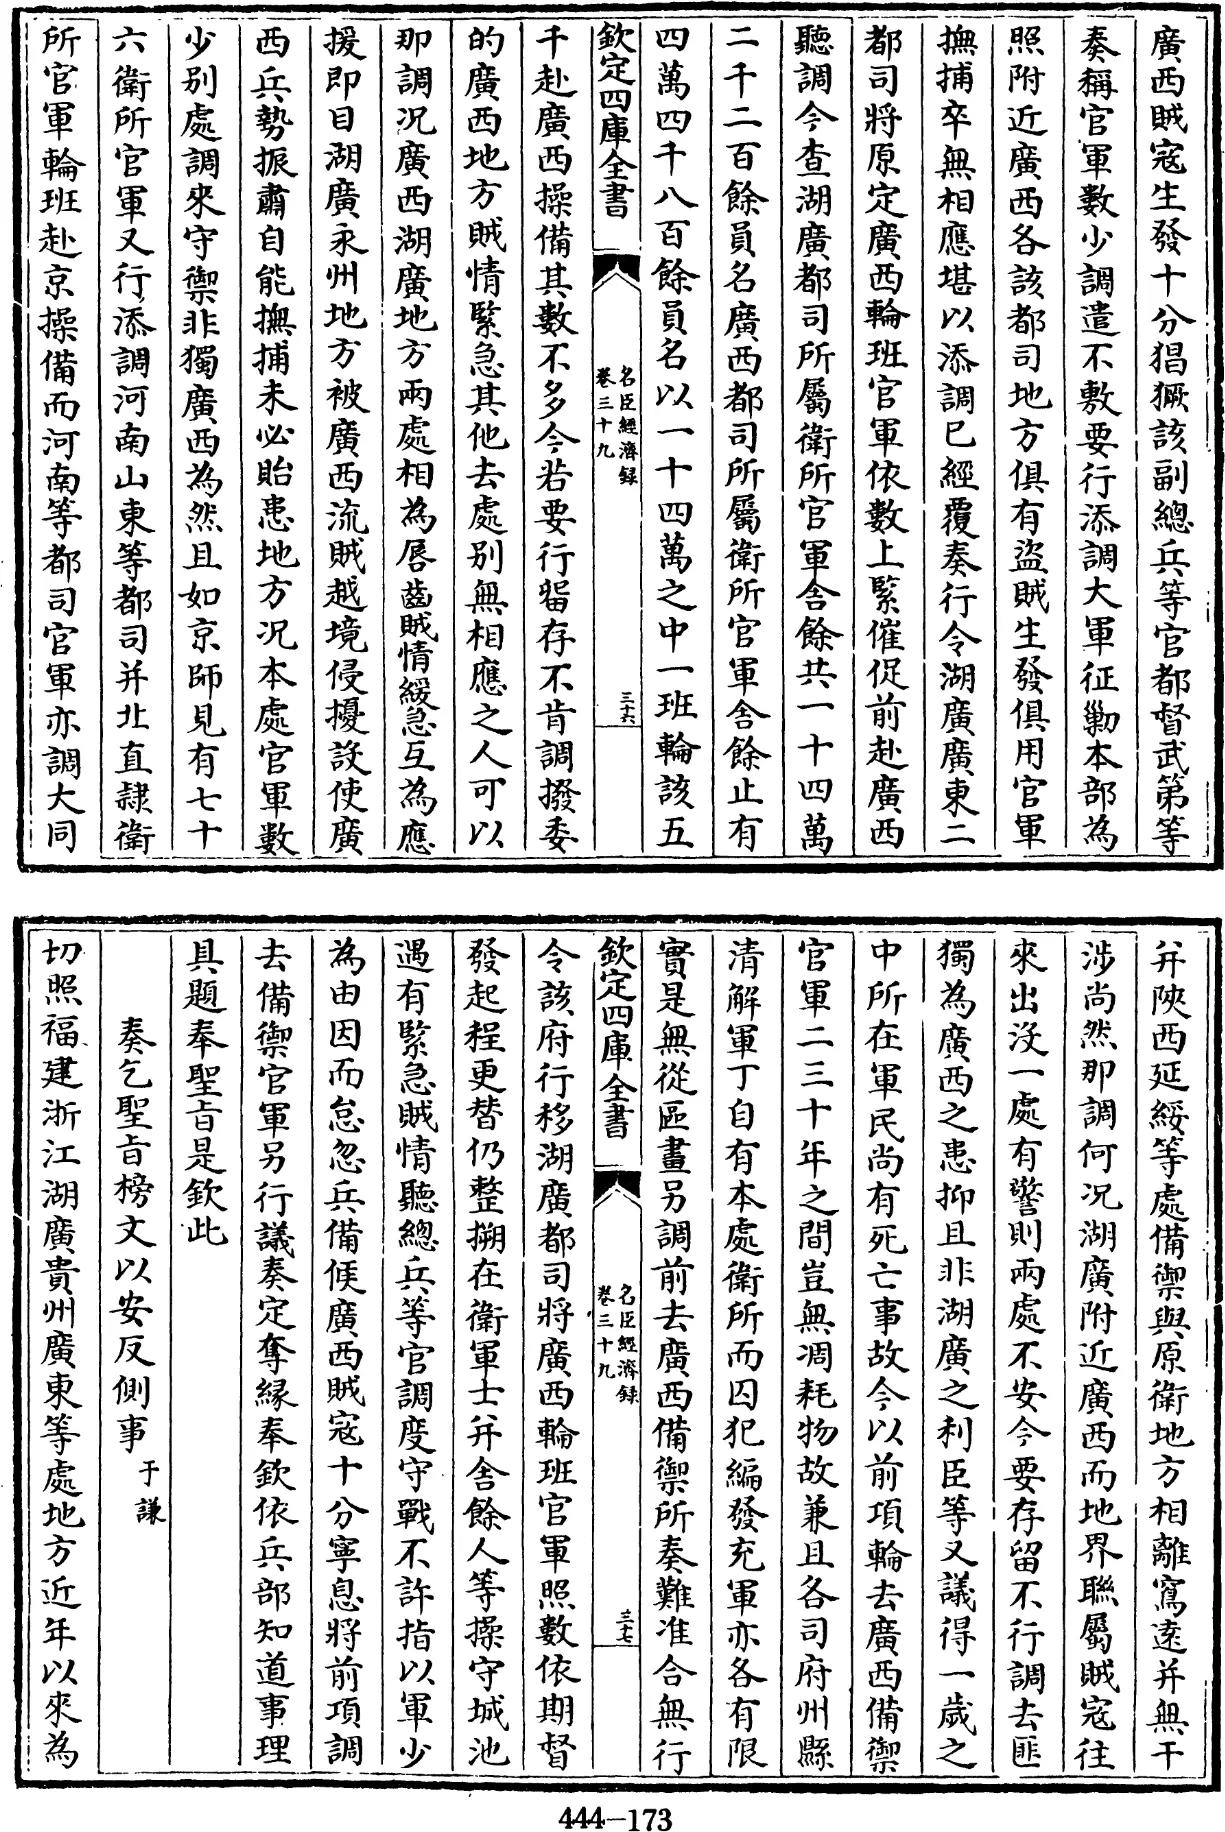 廣西賊寇生發十分猖獗該副總兵等官都督武第等
奏稱官軍數少調遣不敷要行添調大軍征勦本部為
照附近廣西各該都司地方俱有盜賊生發俱用官軍
撫捕卒無相應堪以添調已經覆奏行令湖廣廣東二
都司將原定廣西輪班官軍依數上緊催促前赴廣西
聽調今查湖廣都司所屬衛所官軍舍餘共一十四萬
二千二百餘員名廣西都司所屬衛所官軍舍餘止有
四萬四千八百餘員名以一十四萬之中一班輪該五
欽定四庫全書
名臣經濟録
卷三十九
三十六
千赴廣西操備其數不多今若要行留存不肯調撥委
的廣西地方賊情緊急其他去處別無相應之人可以
那調况廣西湖廣地方兩處相為唇齒賊情緩急互為應
援即目湖廣永州地方被廣西流賊越境侵擾設使廣
西兵勢振肅自能撫捕未必貽患地方况本處官軍數
少别處調來守禦非獨廣西為然且如京師見有七十
六衛所官軍又行添調河南山東等都司并北直隷衛
所官軍輪班赴京操備而河南等都司官軍亦調大同
并陜西延綏等處備禦與原衛地方相離寫遠并無干
涉尚然那調何况湖廣附近廣西而地界聯屬賊寇往
來出没一處有警則兩處不安今要存留不行調去匪
獨為廣西之患抑且非湖廣之利臣等又議得一歲之
中所在軍民尚有死亡事故今以前項輪去廣西備禦
官軍二三十年之間豈無凋耗物故兼且各司府州縣
清解軍丁自有本處衛所而囚犯編發充軍亦各有限
實是無從區畫另調前去廣西備禦所奏難准合無行
欽定四庫全書
名臣經濟録
卷三十九
三十七
令該府行移湖廣都司將廣西輪班官軍照數依期督
發起程更替仍整搠在衛軍士并舍餘人等操守城池
遇有緊急賊情聽總兵等官調度守戰不許指以軍少
為由因而怠忽兵備候廣西賊寇十分寧息將前項調
去備禦官軍另行議奏定奪緣奉欽依兵部知道事理
具題奉聖旨是欽此
奏乞聖旨榜文以安反側事 于謙
切照福建浙江湖廣貴州廣東等處地方近年以來為
444—173